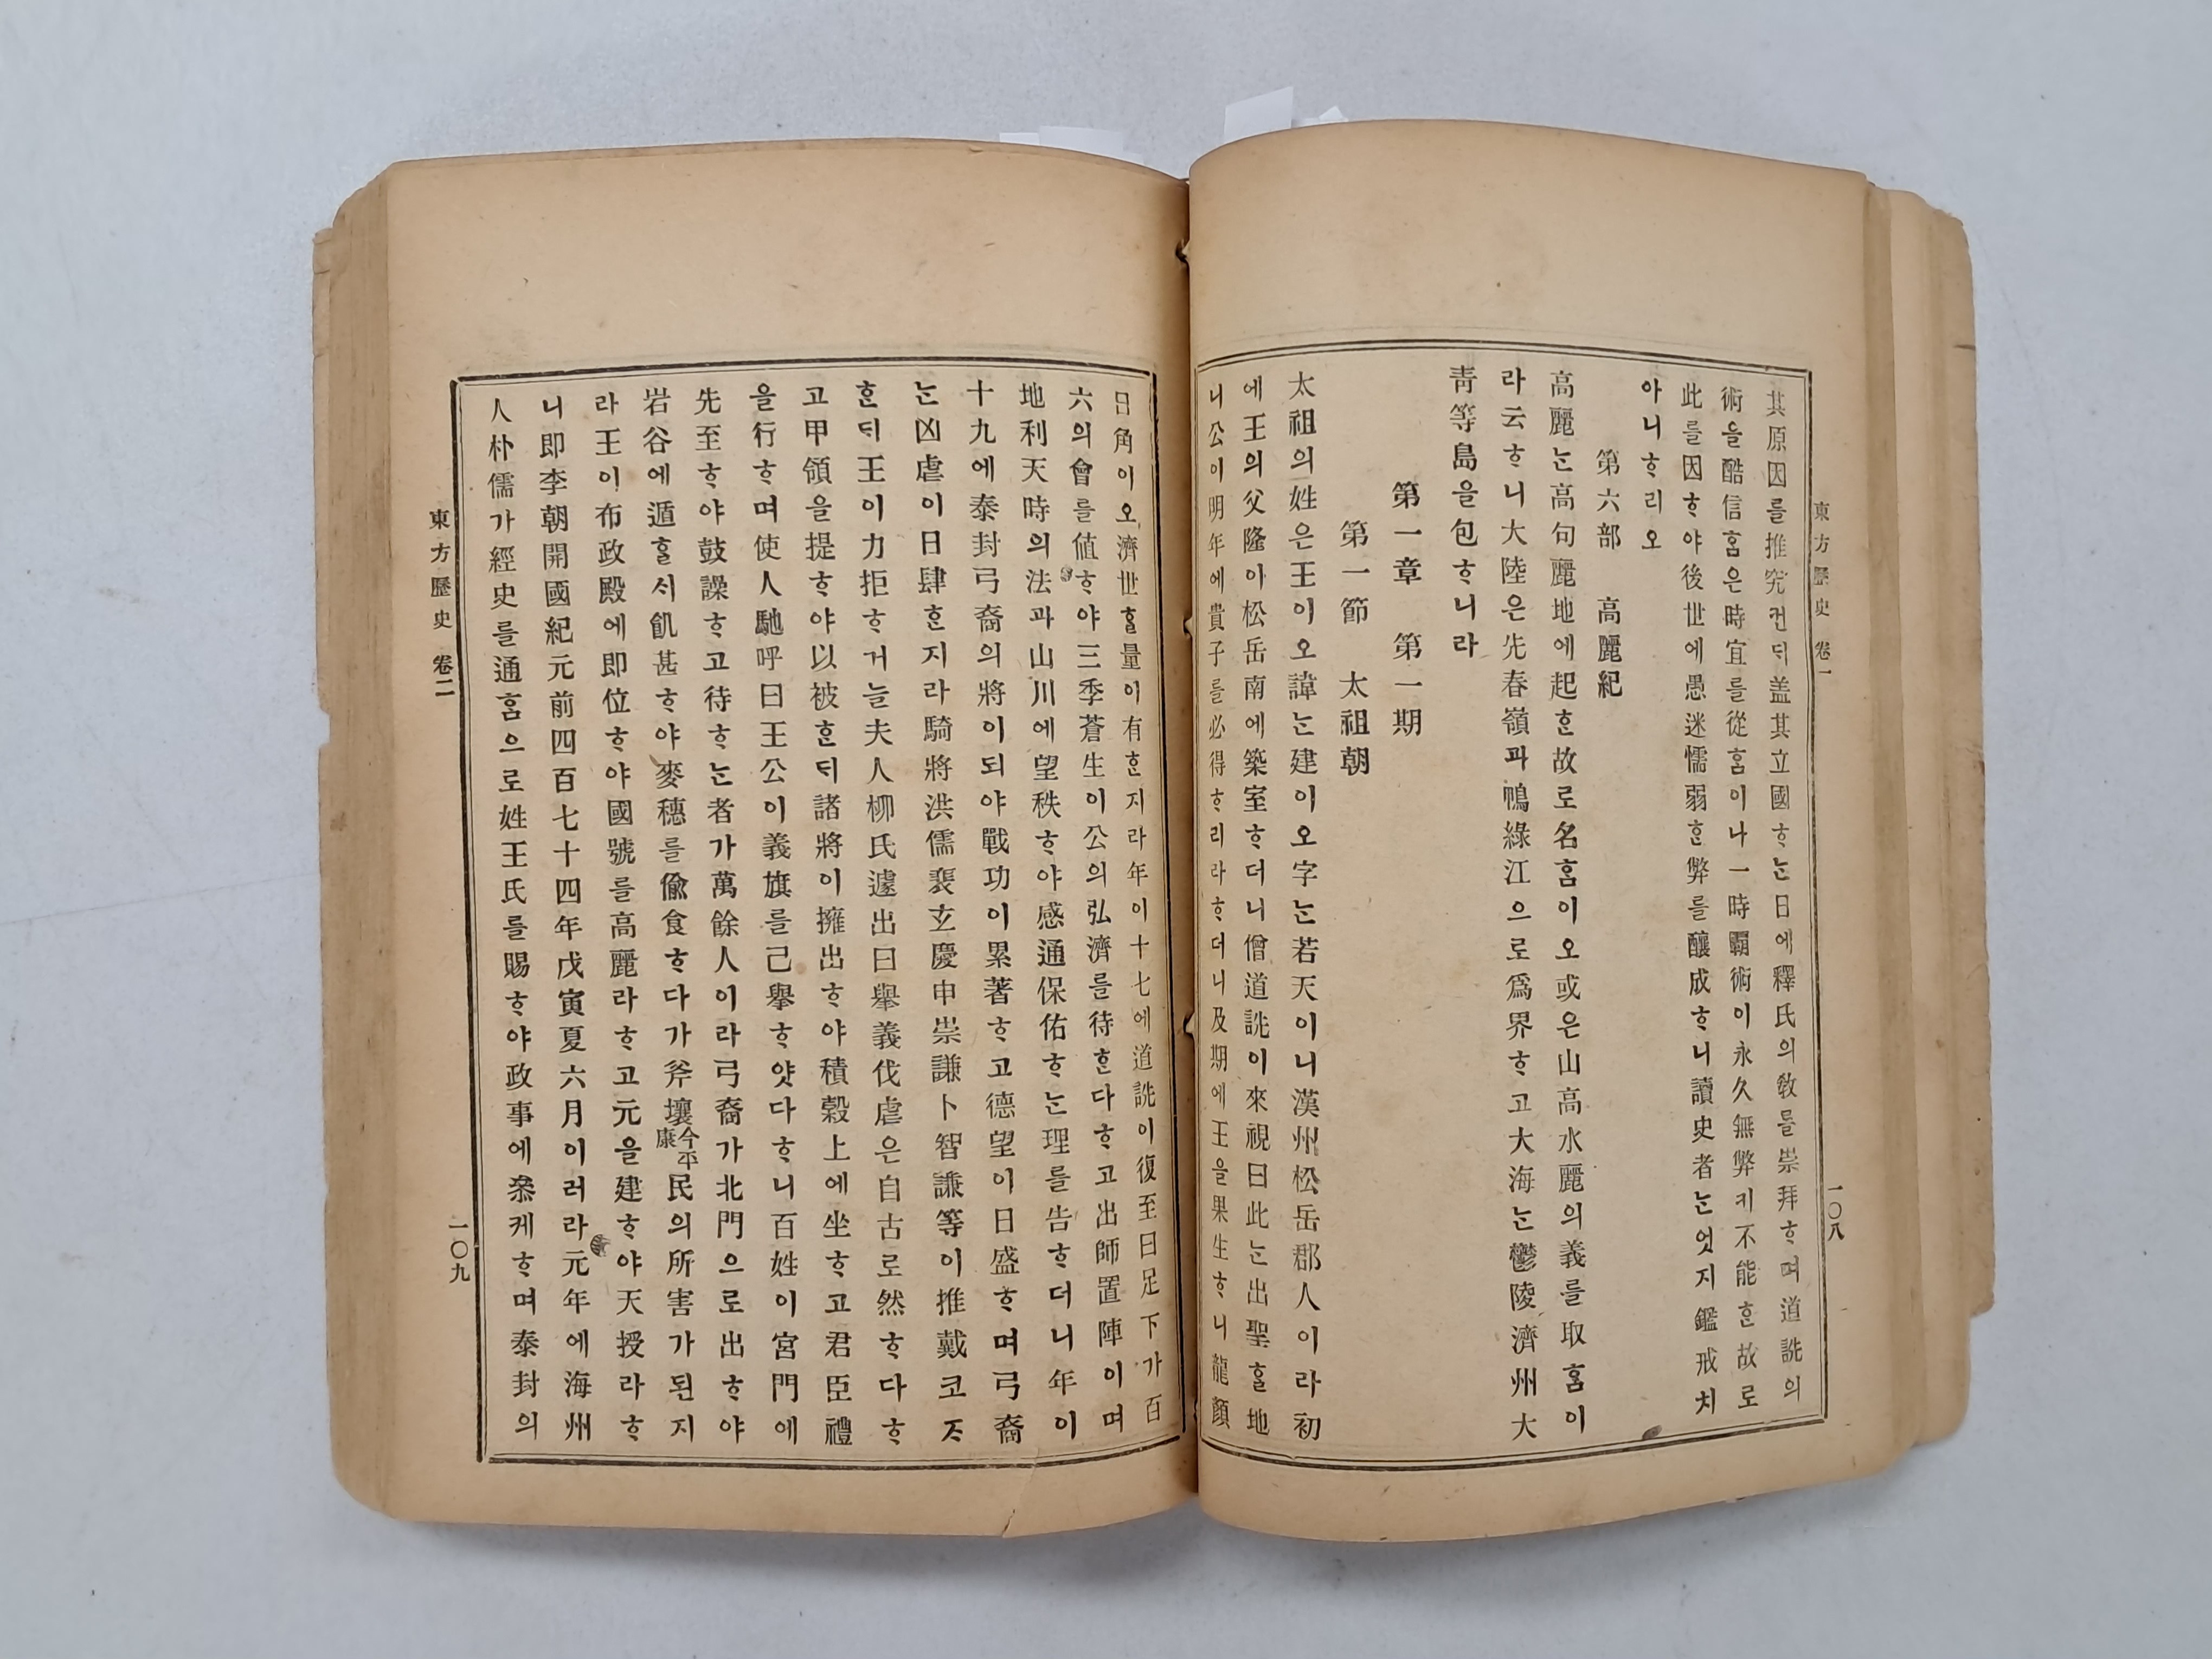 東方歷史 卷一
一〇八
其原因를推究컨ᄃᆡ盖其立國ᄒᆞᄂᆞᆫ日에釋氏의敎를崇拜ᄒᆞ며道詵의
術을酷信ᄒᆞᆷ은時宜를從ᄒᆞᆷ이나一時覇術이永久無弊키不能ᄒᆞᆫ故로
此를因ᄒᆞ야後世에愚迷懦弱ᄒᆞᆫ弊를釀成ᄒᆞ니讀史者ᄂᆞᆫ엇지鑑戒치
아니ᄒᆞ리오
第六部 高麗紀
高麗ᄂᆞᆫ高句麗地에起ᄒᆞᆫ故로名ᄒᆞᆷ이오或은山高水麗의義를取ᄒᆞᆷ이
라云ᄒᆞ니大陸은先春嶺과鴨綠江으로爲界ᄒᆞ고大海ᄂᆞᆫ鬱陵濟州大
靑等島을包ᄒᆞ니라
第一章 第一期
第一節 太祖朝
太祖의姓은王이오諱ᄂᆞᆫ建이오字ᄂᆞᆫ若天이니漢州松岳郡人이라初
에王의父隆아松岳南에築室ᄒᆞ더니僧道詵이來視曰此ᄂᆞᆫ出聖ᄒᆞᆯ地
니公이明年에貴子를必得ᄒᆞ리라ᄒᆞ더니及期에王을果生ᄒᆞ니龍顏
日角이오濟世ᄒᆞᆯ量이有ᄒᆞᆫ지라年이十七에道詵이復至曰足下가百
六의會를値ᄒᆞ야三季蒼生이公의弘濟를待ᄒᆞᆫ다ᄒᆞ고出師置陣이며
地利天時의法과山川에望秩ᄒᆞ야感通保佑ᄒᆞᄂᆞᆫ理를告ᄒᆞ더니年이
十九에泰封弓裔의將이되야戰功이累著ᄒᆞ고德望이日盛ᄒᆞ며弓裔
ᄂᆞᆫ凶虐이日肆ᄒᆞᆫ지라騎將洪儒裴玄慶申崇謙卜智謙等이推戴코ᄌᆞ
ᄒᆞᆫᄃᆡ王이力拒ᄒᆞ거늘夫人柳氏遽出曰擧義伐虐은自古로然ᄒᆞ다ᄒᆞ
고甲領을提ᄒᆞ야以被ᄒᆞᆫᄃᆡ諸將이擁出ᄒᆞ야積穀上에坐ᄒᆞ고君臣禮
을行ᄒᆞ며使人馳呼曰王公이義旗를已擧ᄒᆞ얏다ᄒᆞ니百姓이宮門에
先至ᄒᆞ야鼓譟ᄒᆞ고待ᄒᆞᄂᆞᆫ者가萬餘人이라弓裔가北門으로出ᄒᆞ야
岩谷에遁ᄒᆞᆯᄉᆡ飢甚ᄒᆞ야麥穗를偸食ᄒᆞ다가斧壤今平康民의所害가된지
라王이布政殿에即位ᄒᆞ야國號를高麗라ᄒᆞ고元을建ᄒᆞ야天授라ᄒᆞ
니即李朝開國紀元前四百七十四年戊寅夏六月이러라元年에海州
人朴儒가經史를通ᄒᆞᆷ으로姓王氏를賜ᄒᆞ야政事에叅케ᄒᆞ며泰封의
東方歷史 卷二
一〇九